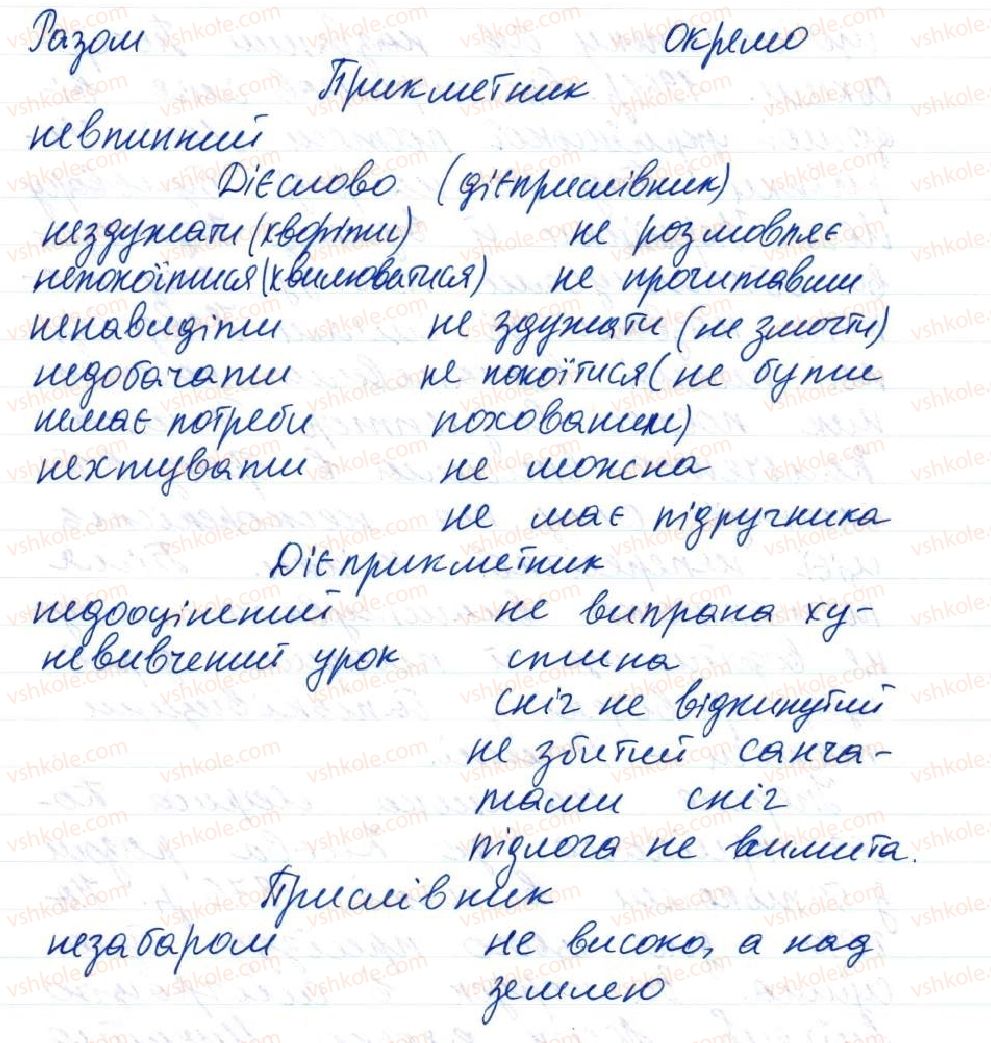 Разом окремо
Прикметник
невпинний
Дієслово (дієприслівник)
нездужати (хворіти) не розмовляє
непокоїтися (хвилюватися) не прочитавши
ненавидіти не здужати (не змогти)
недобачати не покоїтися (не бути
немає потреби похованим)
нехтувати не можна
не має підручника
Дієприкметник
недооцінений не випрана ху-
невивчений урок стина
сніг не відкинутий
не збитий санча-
тами сніг
підлога не вимита.
Прислівник
незабаром не високо, а над
землею